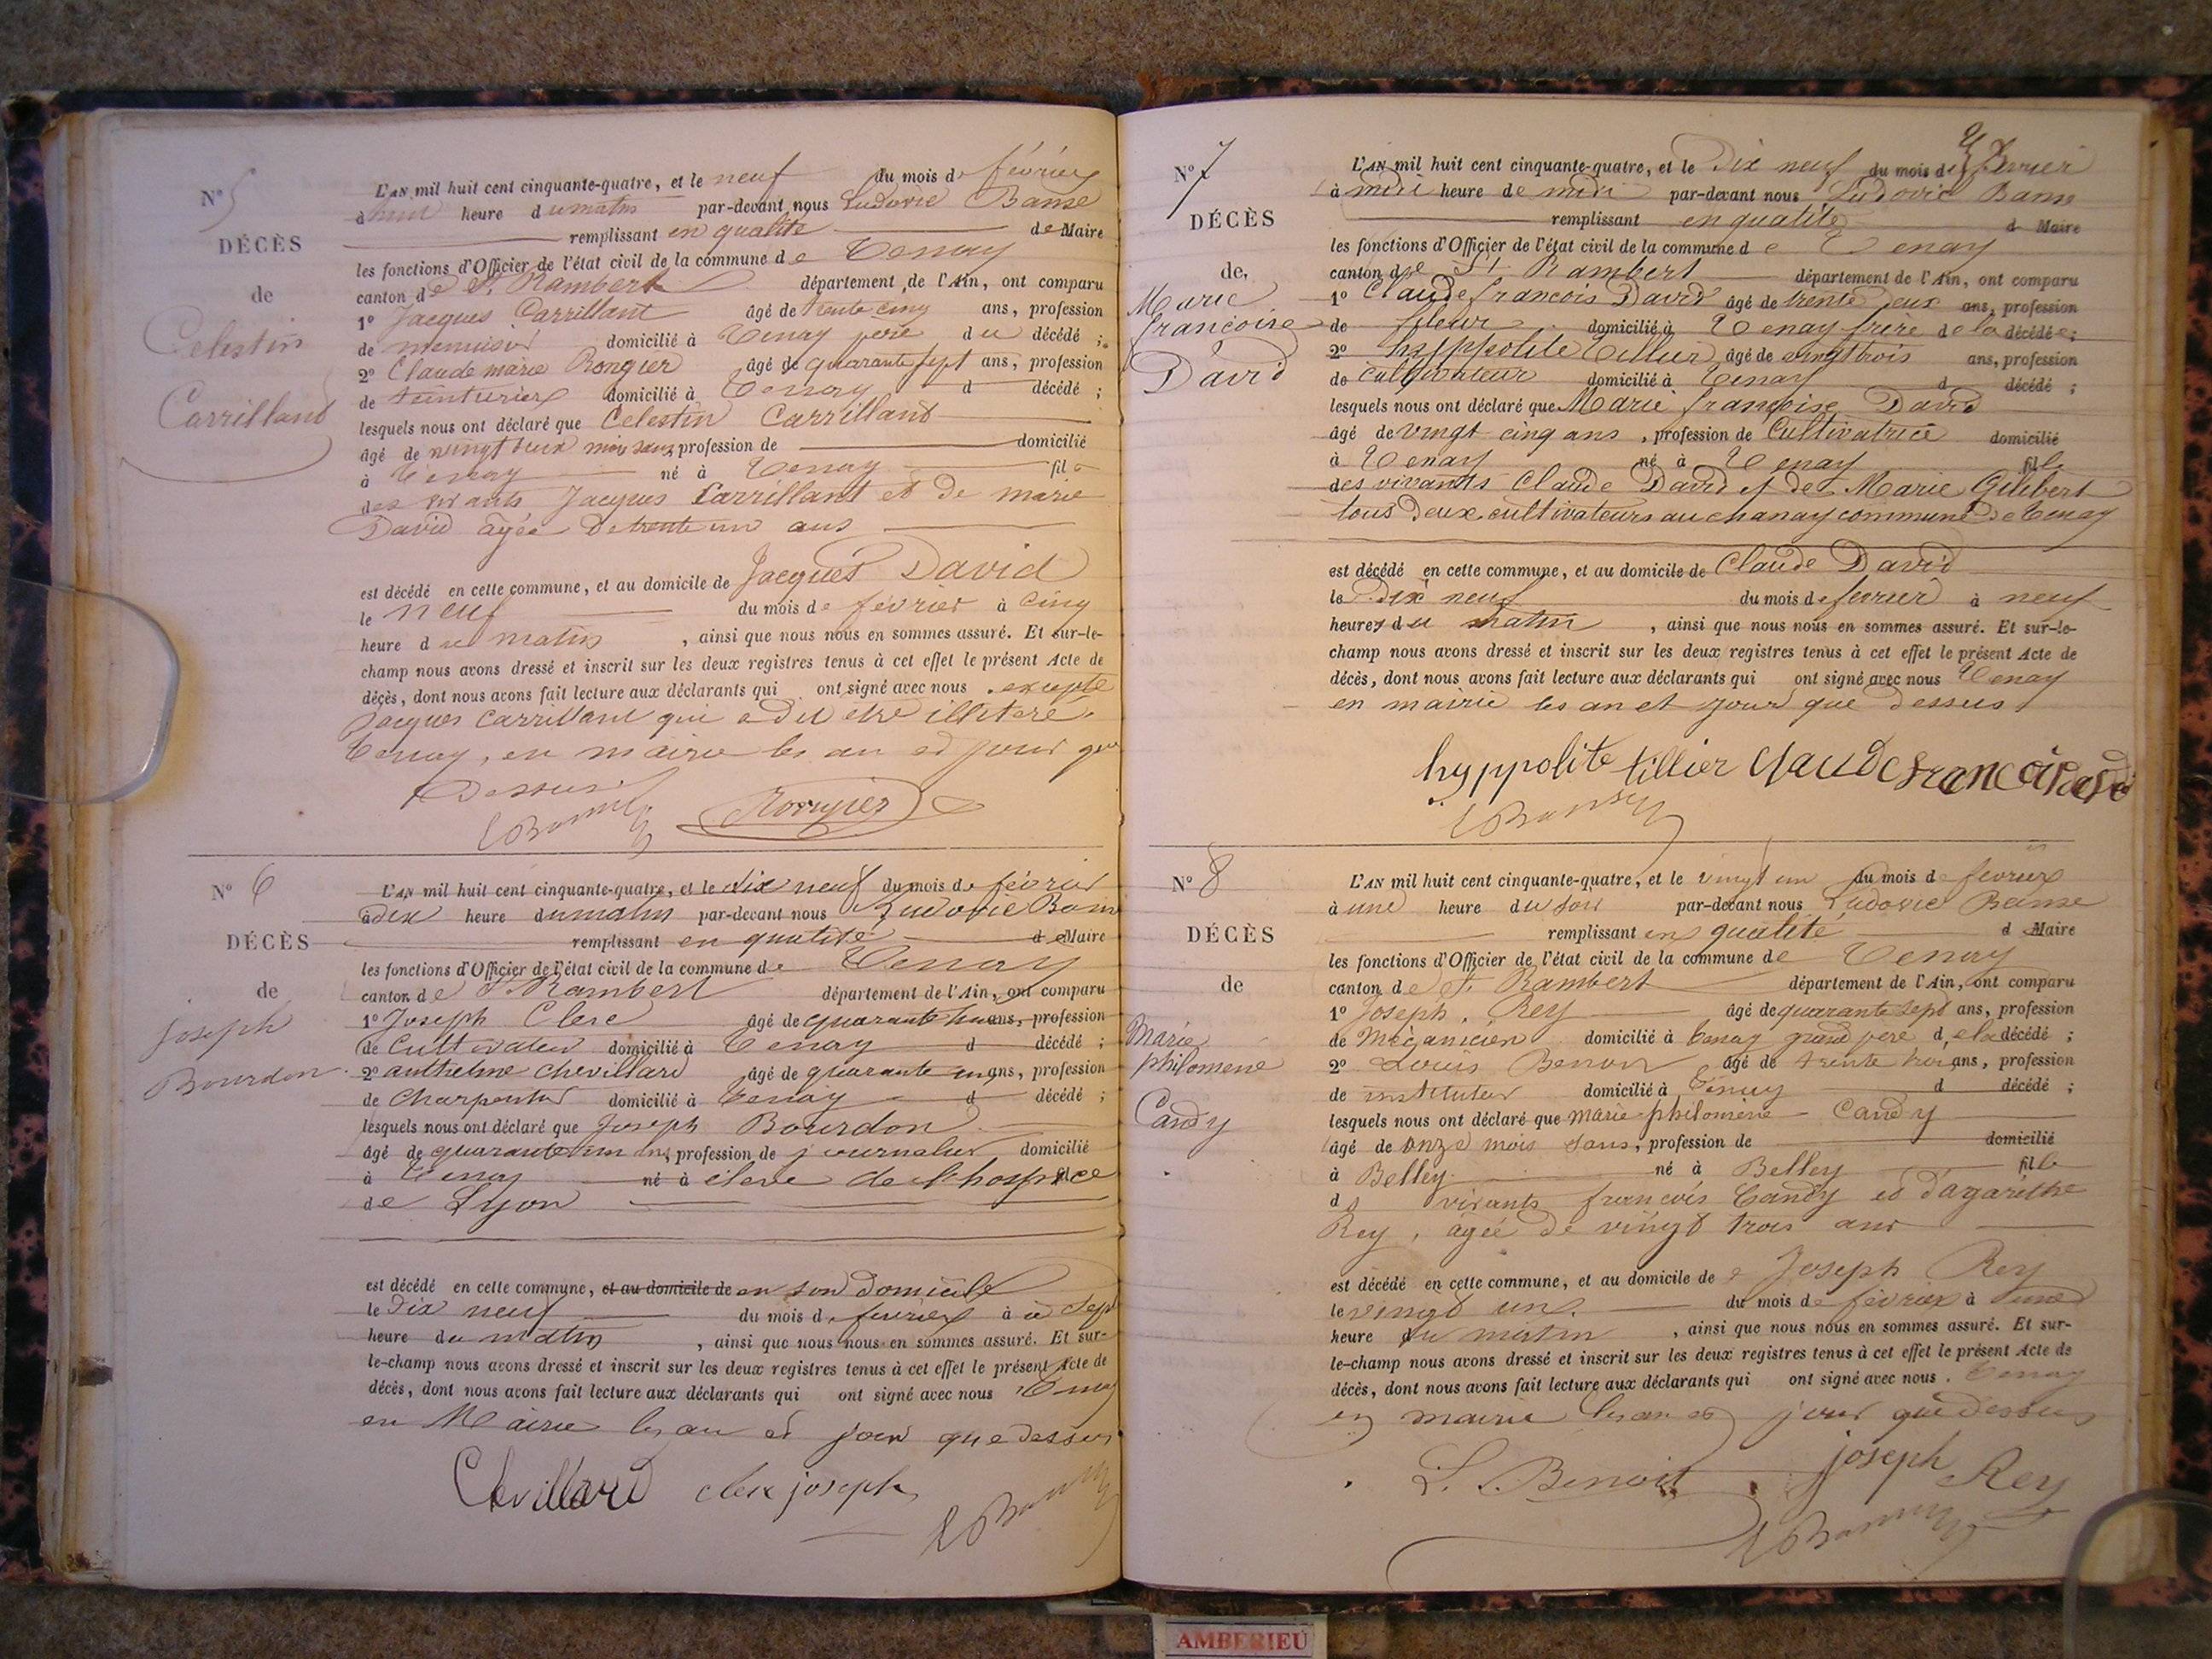 N° 5
DÉCÈS
de
Celestin
Carrilland
L'AN mil huit cent cinquante-quatre, et le neuf du mois de février
à huit heure du matin par-devant nous Ludovic Banse
remplissant en qualité de Maire
les fonctions d'Officier de l'état civil de la commune de Tenay
canton de St Rambert département de l'Ain, ont comparu
1° Jacques Carrillant âgé de trente cinq ans, profession
de menuisier domicilié à Tenay père du décédé ;
2° Claude marie Rongier âgé de quarante sept ans, profession
de teinturier domicilié à Tenay d décédé ;
lesquels nous ont déclaré que Celestin Carrilland
âgé de vingt deux mois sans profession de domicilié
à Tenay né à Tenay fils
des vivants Jacques Carrillant et de marie
David agée de trente un ans
est décédé en cette commune, et au domicile de Jacques David
le neuf du mois de février à cinq
heure du matin , ainsi que nous nous en sommes assuré. Et sur-le-
champ nous avons dressé et inscrit sur les deux registres tenus à cet effet le présent Acte de
décès, dont nous avons fait lecture aux déclarants qui ont signé avec nous . excepté
Jacques Carrillant qui a dit etre illitere.
Tenay, en mairie les an et jour que
Dessus
N° 6
DÉCÈS
de
Joseph
Bourdon
L'AN mil huit cent cinquante-quatre, et le dix neuf du mois de février
à dix heure du matin par-devant nous Ludovic Bans
remplissant en qualité de Maire
les fonctions d'Officier de l'état civil de la commune de Tenay
canton de St Rambert département de l'Ain, ont comparu
1° Joseph Clerc âgé de quarante ans, profession
de Cultivateur domicilié à Tenay d décédé ;
2° anthelme chevillard âgé de quarante ans, profession
de Charpentier domicilié à Tenay d décédé ;
lesquels nous ont déclaré que Joseph Bourdon
âgé de quarante un ans, profession de journalier domicilié
à Tenay né à éleve de l'hospice
de Lyon
est décédé en cette commune, et au domicile de en son domicile
le dix neuf du mois de février à sept
heure du matin , ainsi que nous nous en sommes assuré. Et sur-
le-champ nous avons dressé et inscrit sur les deux registres tenus à cet effet le présent Acte de
décès, dont nous avons fait lecture aux déclarants qui ont signé avec nous Tenay
en Mairie les an et jour que dessus
Chevillard clerc joseph
N° 7
DÉCÈS
de
Marie
francoise
David
L'AN mil huit cent cinquante-quatre, et le Dix neuf du mois de février
à midi heure de midi par-devant nous Ludovic Banse
remplissant en qualité d Maire
les fonctions d'Officier de l'état civil de la commune de Tenay
canton de St Rambert département de l'Ain, ont comparu
1° Claude francois David âgé de trente deux ans, profession
de fileur domicilié à Tenay frère de la décédée ;
2° hyppolite Tillier âgé de vingt trois ans, profession
de Cultivateur domicilié à Tenay d décédé ;
lesquels nous ont déclaré que Marie françoise David
âgé de vingt cinq ans , profession de Cultivatrice domicilié
à Tenay né à Tenay fille
des vivants Claude David et de Marie Gilibert
tous deux cultivateurs au chanay commune de Tenay
est décédé en cette commune, et au domicile de Claude David
le Dix neuf du mois de fevrier à neuf
heures du matin , ainsi que nous nous en sommes assuré. Et sur-le-
champ nous avons dressé et inscrit sur les deux registres tenus à cet effet le présent Acte de
décès, dont nous avons fait lecture aux déclarants qui ont signé avec nous Tenay
en mairie les an et jour que dessus
hyppolite tillier Claude francois david
N° 8
DÉCÈS
de
Marie
philomène
Candy
L'AN mil huit cent cinquante-quatre, et le vingt un du mois de février
à une heure du soir par-devant nous Ludovic Banse
remplissant en qualité d Maire
les fonctions d'Officier de l'état civil de la commune de Tenay
canton de St Rambert département de l'Ain, ont comparu
1° Joseph Rey âgé de quarante sept ans, profession
de Mécanicien domicilié à Tenay grand père de la décédé ;
2° Louis Benoit âgé de trente trois ans, profession
de instituteur domicilié à Tenay d décédé ;
lesquels nous ont déclaré que marie philomène Candy
âgé de onze mois sans, profession de domicilié
à Belley né à Belley fille
des vivants francois Candy et d'agarithe
Rey, agée de vingt trois ans
est décédé en cette commune, et au domicile de Joseph Rey
le vingt un du mois de février à une
heure du matin , ainsi que nous nous en sommes assuré. Et sur-
le-champ nous avons dressé et inscrit sur les deux registres tenus à cet effet le présent Acte de
décès, dont nous avons fait lecture aux déclarants qui ont signé avec nous . Tenay
en mairie les an et jour que dessus
L. Benoit joseph Rey
AMBERIEU